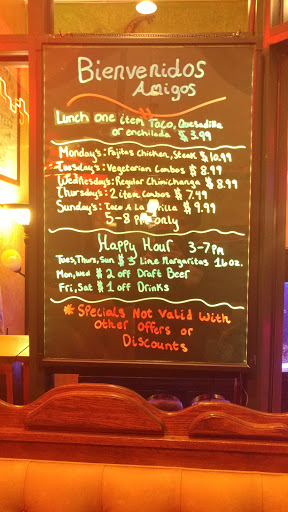 Bienvenidos
Amigos
Lunch one item Taco, Quesadilla
or enchilada $ 3.99
Monday's: Fajitas Chicken, Steak $ 10.99
Tuesday's: Vegetarian Combos $ 8.99
Wednesday's: Regular Chimichanga $ 8.99
Thursday's: 2 item Combos $ 7.99
Sunday's: Taco A La $ 9.99
5-8 pm only
Happy Hour 3-7pm
Tues, Thurs, Sun $ 3 Lime Margaritas 16oz.
Mon, Wed $ 2 off Draft Beer
Fri, Sat $ 1 off Drinks
* Specials Not Valid With
Other Offers or
Discounts